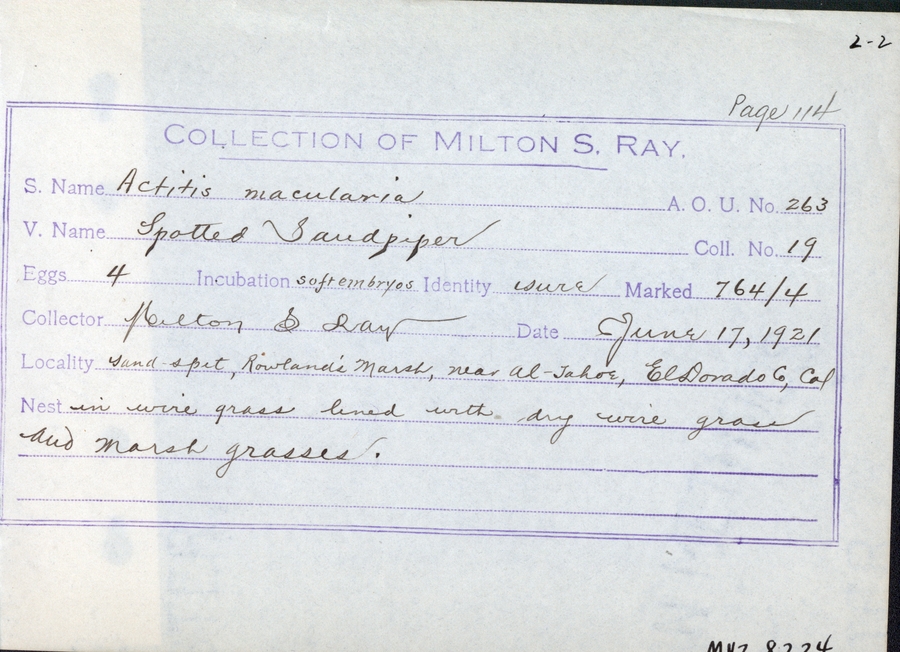 2-2
Page 114
COLLECTION OF MILTON S. RAY.
S. Name Actitis macularia A. O. U. No. 263
V. Name Spotted Sandpiper Coll. No. 19
Eggs 4 Incubation soft embryos Identity sure Marked 764/4
Collector Milton S Ray Date June 17, 1921
Locality sand-spit, Rowland's Marsh, near Al-Tahoe, El Dorado Co, Cal
Nest in wire grass lined with dry wire grass
and marsh grasses.
MVZ 8224